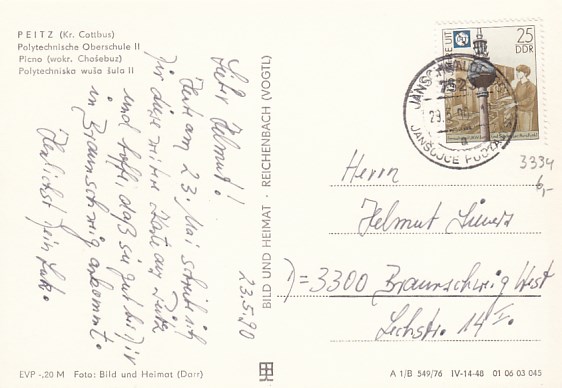 PEITZ (Kr. Cottbus)
Polytechnische Oberschule II
Picno (wokr. Chośebuz)
Polytechniska wuša šula II
Lieber Helmut!
Heute am 23. Mai schreibe ich
Dir diese weitere Karte aus Peitz
und hoffe, daß sie gut bei Dir
in Braunschweig ankommt.
Herzlichst Dein Lutz.
23.5.90
BILD UND HEIMAT · REICHENBACH (VOGTL)
25
DDR
JÄNSCHWALDE
7523
a
JANŠOJCE
3334
6,-
Herrn
Helmut
D=3300 Braunschweig West
Lechstr. 14 I.
EVP -,20 M Foto: Bild und Heimat (Darr)
A 1/B 549/76 IV-14-48 01 06 03 045